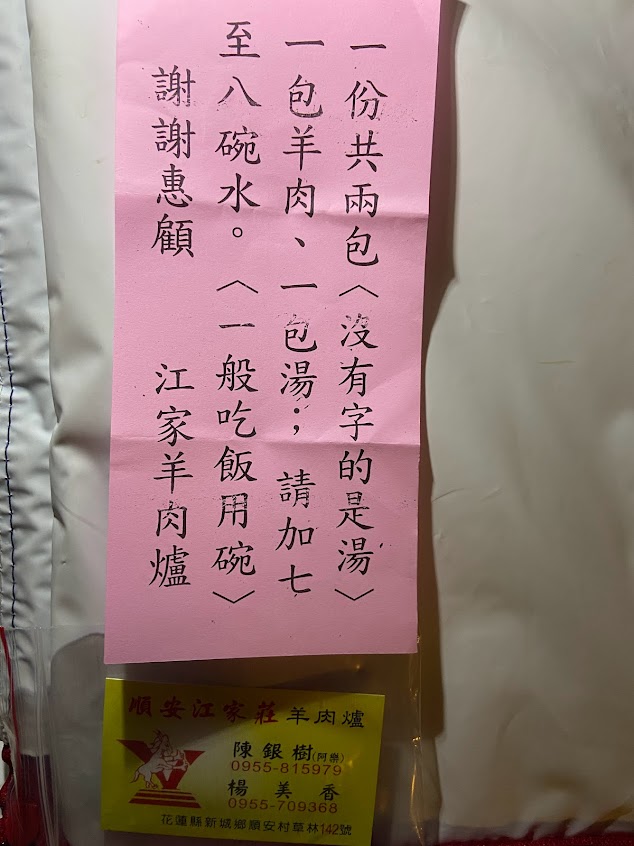 一份共兩包〈沒有字的是湯〉
一包羊肉、一包湯；請加七
至八碗水。〈一般吃飯用碗〉
謝謝惠顧　江家羊肉爐
順安江家莊羊肉爐
陳銀樹(阿樂)
0955-815979
楊美香
0955-709368
花蓮縣新城鄉順安村草林142號